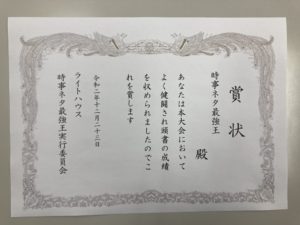 賞状
時事ネタ最強王
殿
あなたは本大会において
よく健闘され頭書の成績
を収められましたのでこ
れを賞します
令和二年十二月二十三日
ライトハウス
時事ネタ最強王実行委員会